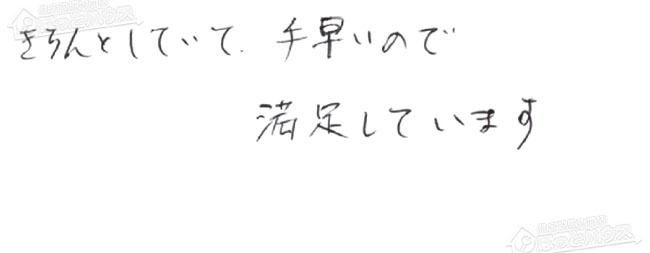 きちんとしていて、手早いので
満足しています